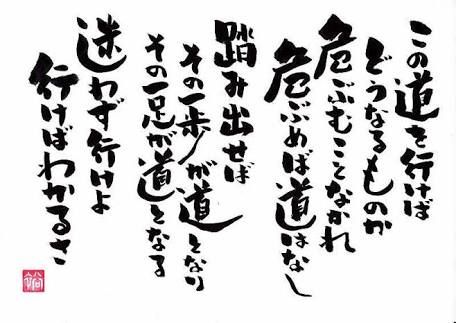 この道を行けば
どうなるものか
危ぶむことなかれ
危ぶめば道はなし
踏み出せば
その一歩が道となり
その一足が道となる
迷わず行けよ
行けばわかるさ